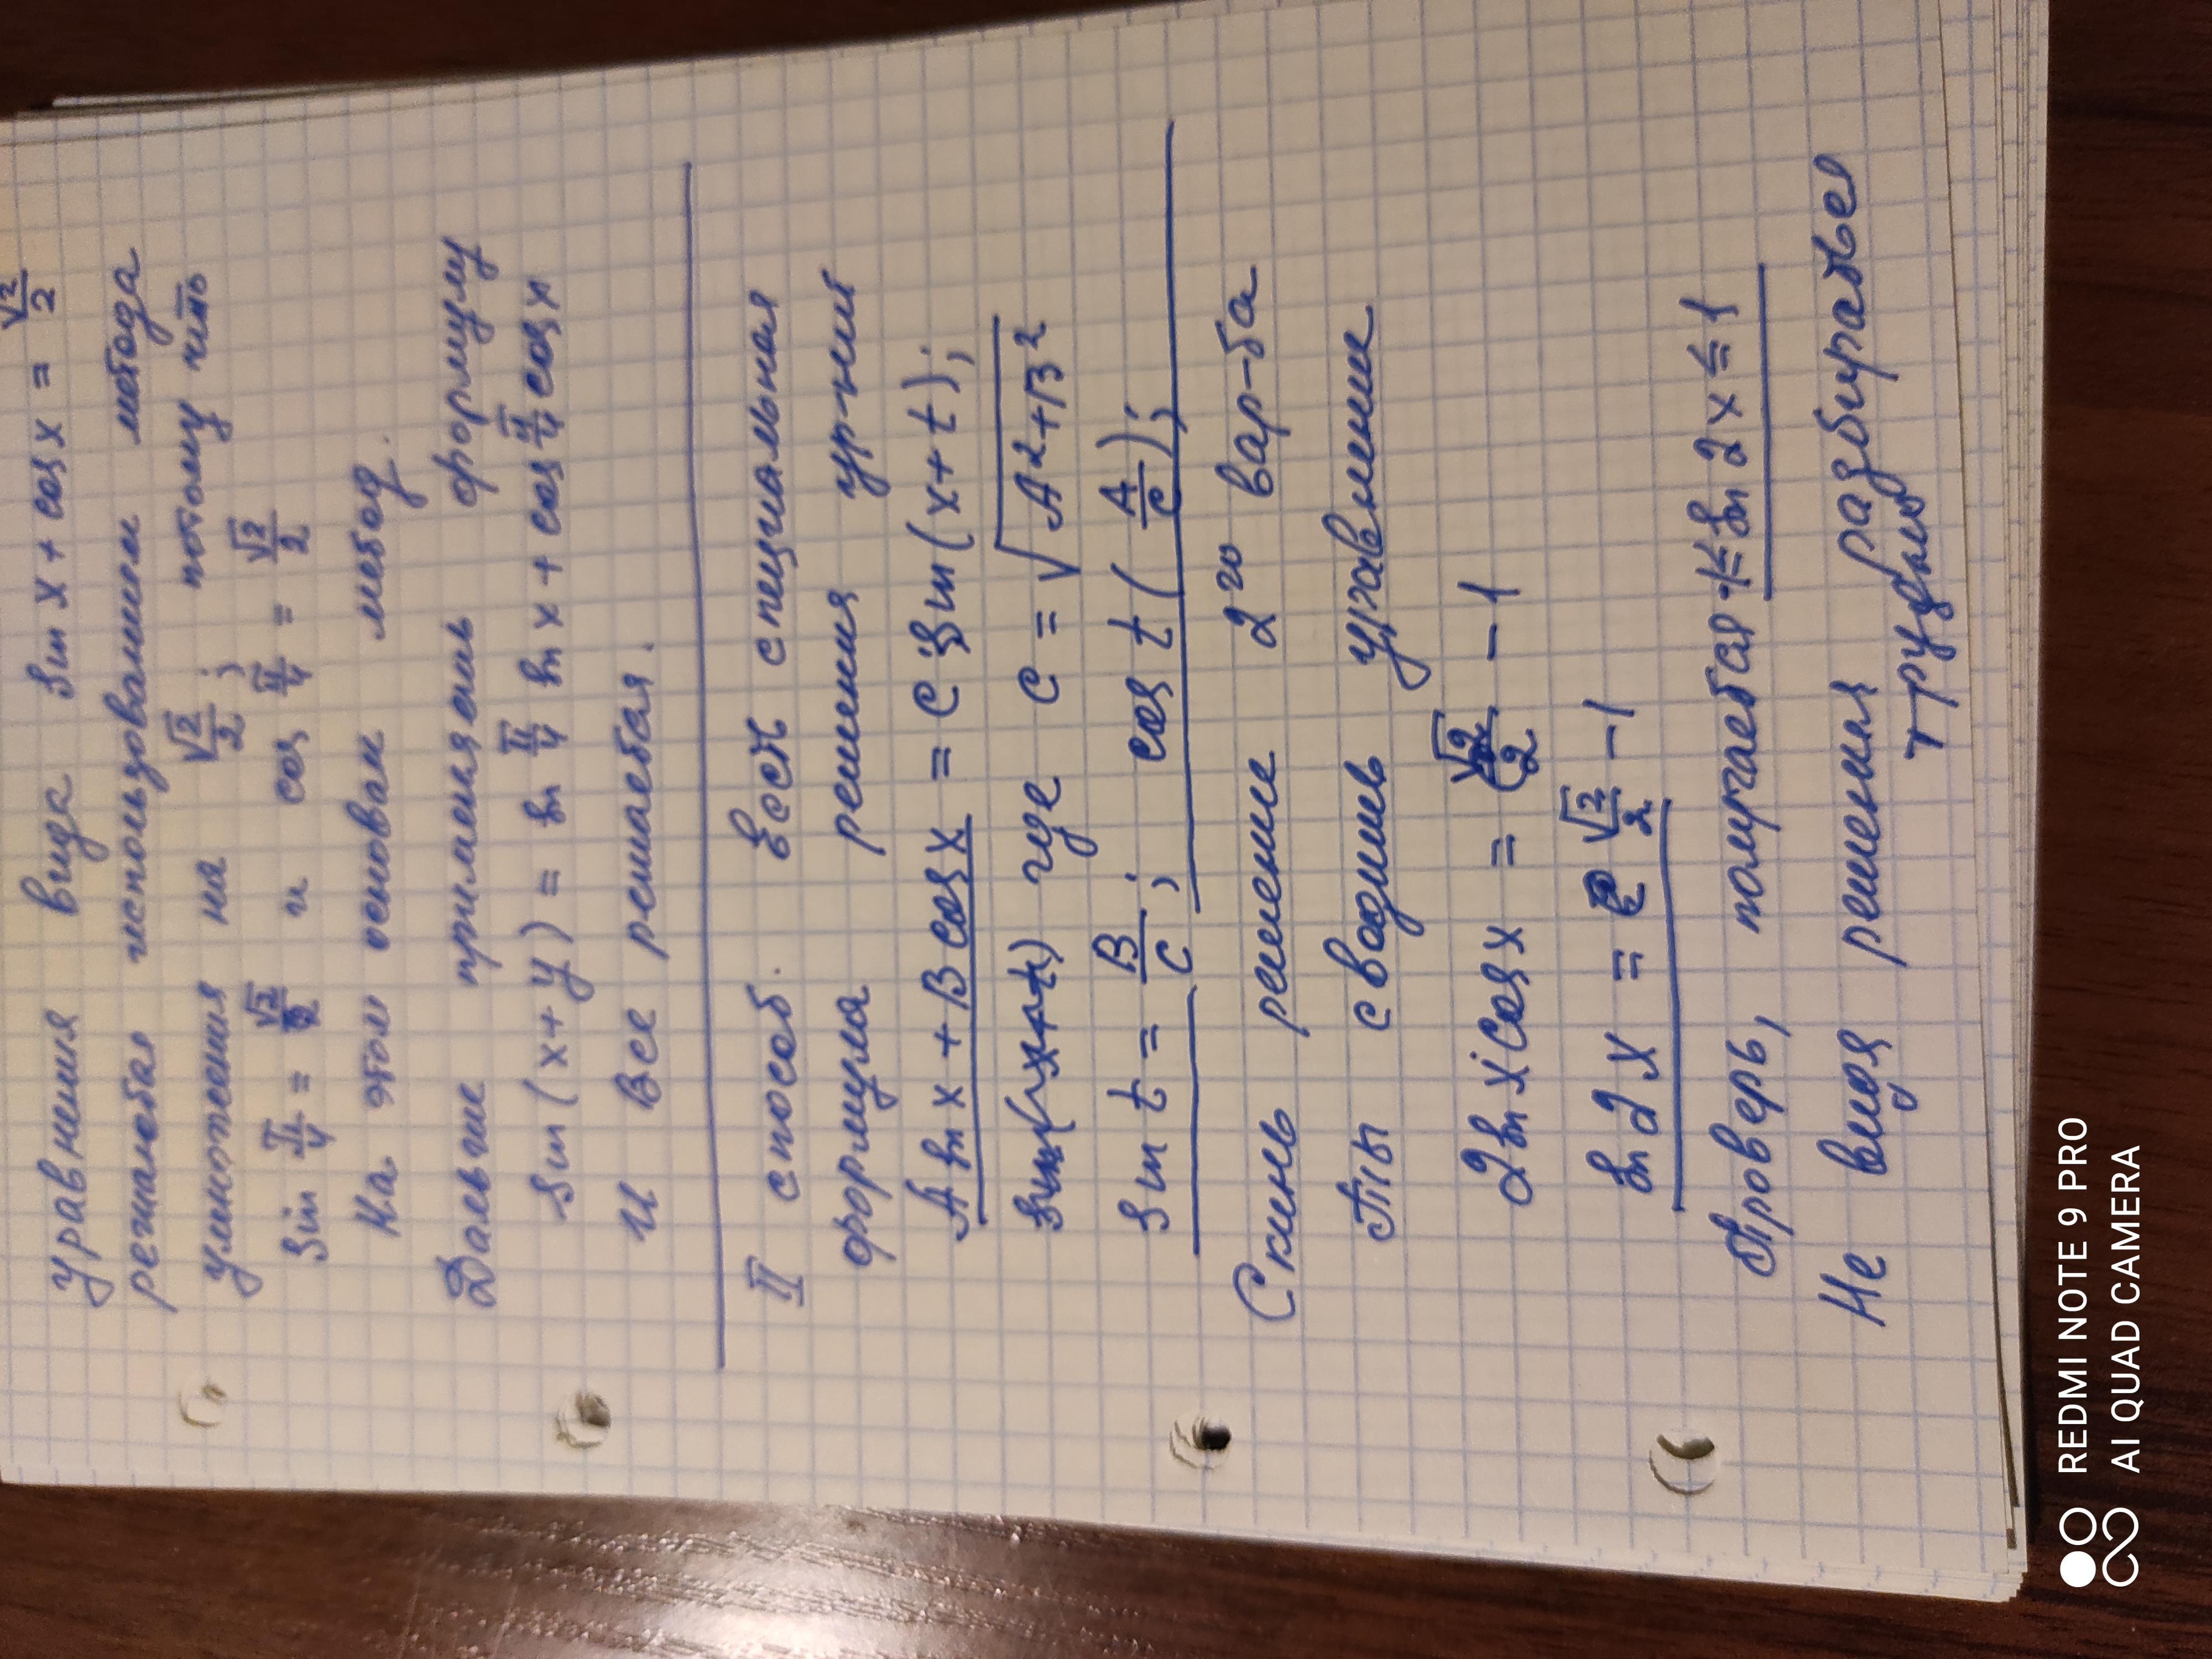 уравнения вида sin x + cos x = √2/2
решаебая использованием метода
умножения на √2/2; потому чить
sin π/4 = √2/2 и cos π/4 = √2/2
На этом основан метод.
Дальше применяешь формулу
sin(x+y) = sin π/4 sin x + cos π/4 cos x
и все решаебая.
II способ. Есть специальная
формула решения ур-ний
A sin x + B cos x = C·sin(x+t);
где C = √A²+B²
sin t = B/C; cos t (A/C);
Скинь решение 2го вар-ба
Ты сводишь уравнение
2 sin x·cos x = √2/2 - 1
sin 2x = √2/2 - 1
Проверь, получаебая -1≤ sin 2x ≤ 1
Не видя решения разбиратье
трудно
REDMI NOTE 9 PRO
AI QUAD CAMERA